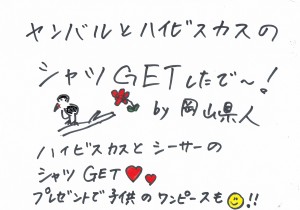 ヤンバルとハイビスカスの
シャツGETしたで〜!
by 岡山県人
ハイビスカスとシーサーの
シャツGET♥♥
プレゼントで子供のワンピースも☺!!